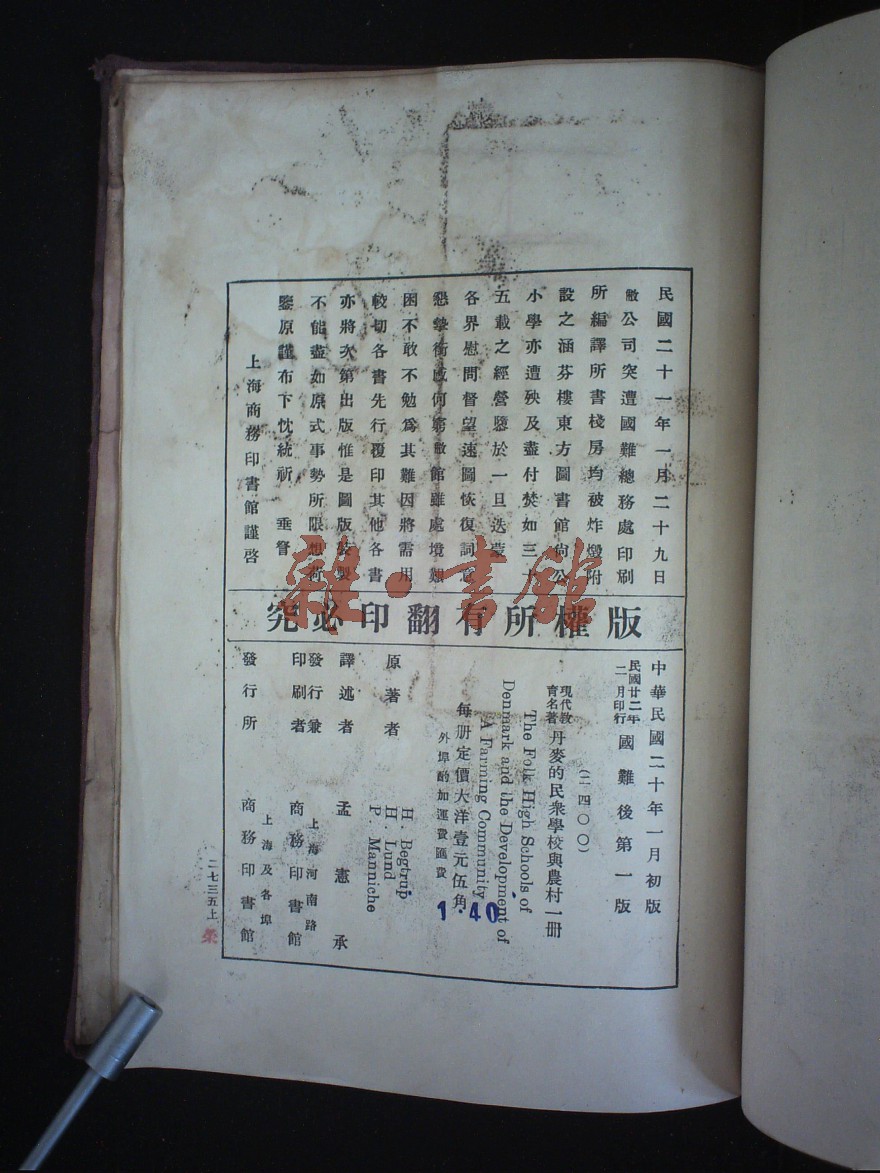 民國二十一年一月二十九日
敝公司突遭國難總務處印刷
所編譯所書棧房均被炸燬附
設之涵芬樓東方圖書館尚公
小學亦遭殃及盡付焚如三十
五載之經營隳於一旦迭蒙
各界慰問督望速圖恢復詞意
懇摯銜感何窮敝館雖處境艱
困不敢不勉爲其難因將需用
較切各書先行覆印其他各書
亦將次第出版惟是圖版裝製
不能盡如原式事勢所限想荷
鑒原謹布下忱統祈 垂詧
上海商務印書館謹啓
版權所有翻印必究
中華民國二十年一月初版
民國廿二年二月印行 國難後第一版
(二一四〇〇)
現代教育名著 丹麥的民衆學校與農村一册
The Folk High Schools of
Denmark and the Development of
A Farming Community
每册定價大洋壹元伍角
外埠酌加運費匯費
1.40
原著者 H. Begtrup
H. Lund
P. Manniche
譯述者 孟憲承
發行兼印刷者 上海河南路 商務印書館
發行所 上海及各埠 商務印書館
二七三五上
雜·書館